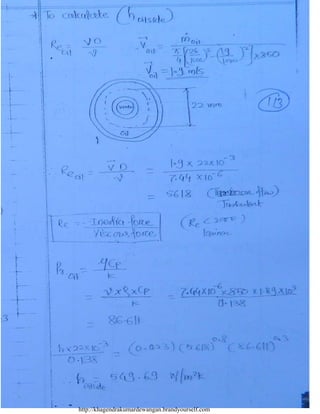 * To calculate (h outside)
Re oil = V D / ν  V oil = m oil / π/4 [( /1000)² - (19/1000)²] x 850
V oil = 1.9 m/s
22 mm
113
water
oil
∴ Re oil = V D / ν = 1.9 x 22 x 10⁻³ / 7.44 x 10⁻⁶
= 5618 ( flow)
Turbulent
Re = Inertia force / Viscous force (Re < 2000)
laminar
Pr oil = μ Cp / K
= ν x ρ x Cp / K = 7.44 x 10⁻⁶ x 850 x 1.89 x 10³ / 0.138
= 86.611
h x 22 x 10⁻³ / 0.138 = (0.023) (5618)^0.8 (86.611)^0.3
∴ h outside = 549.69 W/m²K
http://khagendrakumardewangan.brandyourself.com